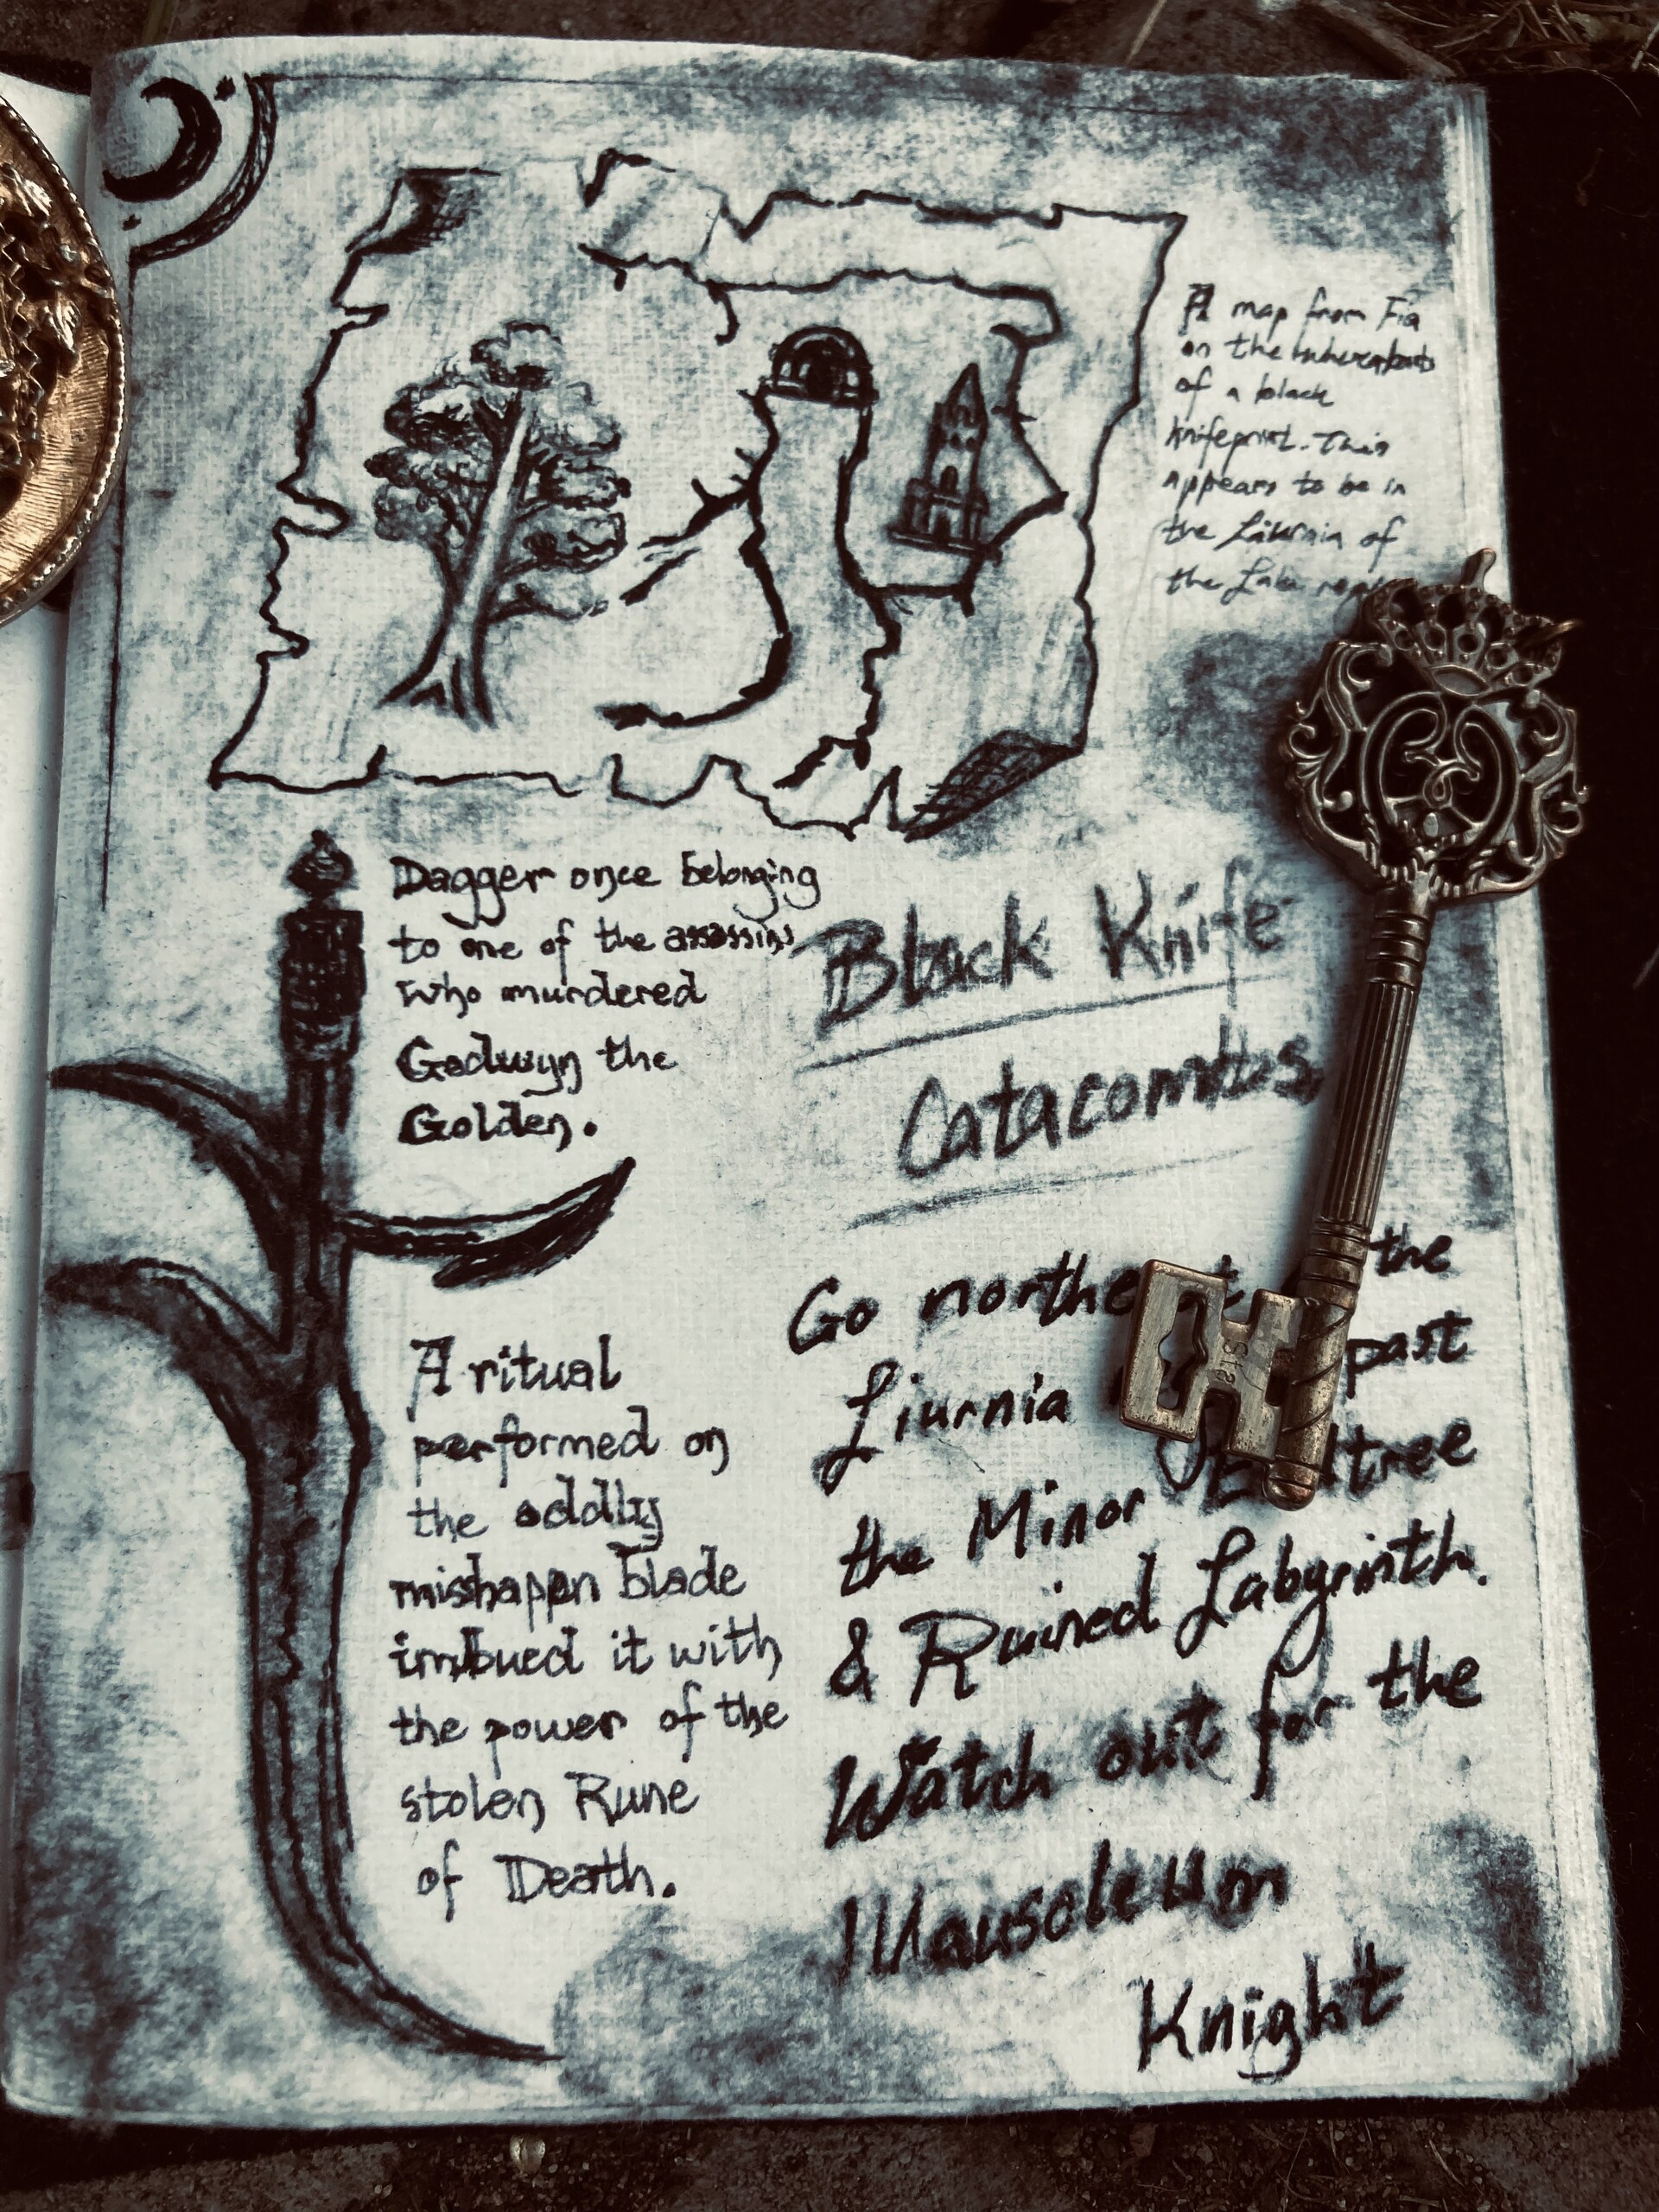 A map from Fia
on the whereabouts
of a black
knifeprint. This
appears to be in
the Liurnia of
the Lake
Dagger once belonging
to one of the assassins
who murdered
Godwyn the
Golden.
Black Knife
Catacombs
A ritual
performed on
the oddly
misshapen blade
imbued it with
the power of the
stolen Rune
of Death.
Go the
Liurnia past
the Minor
& Ruined Labyrinth.
Watch out for the
Mausoleum
Knight